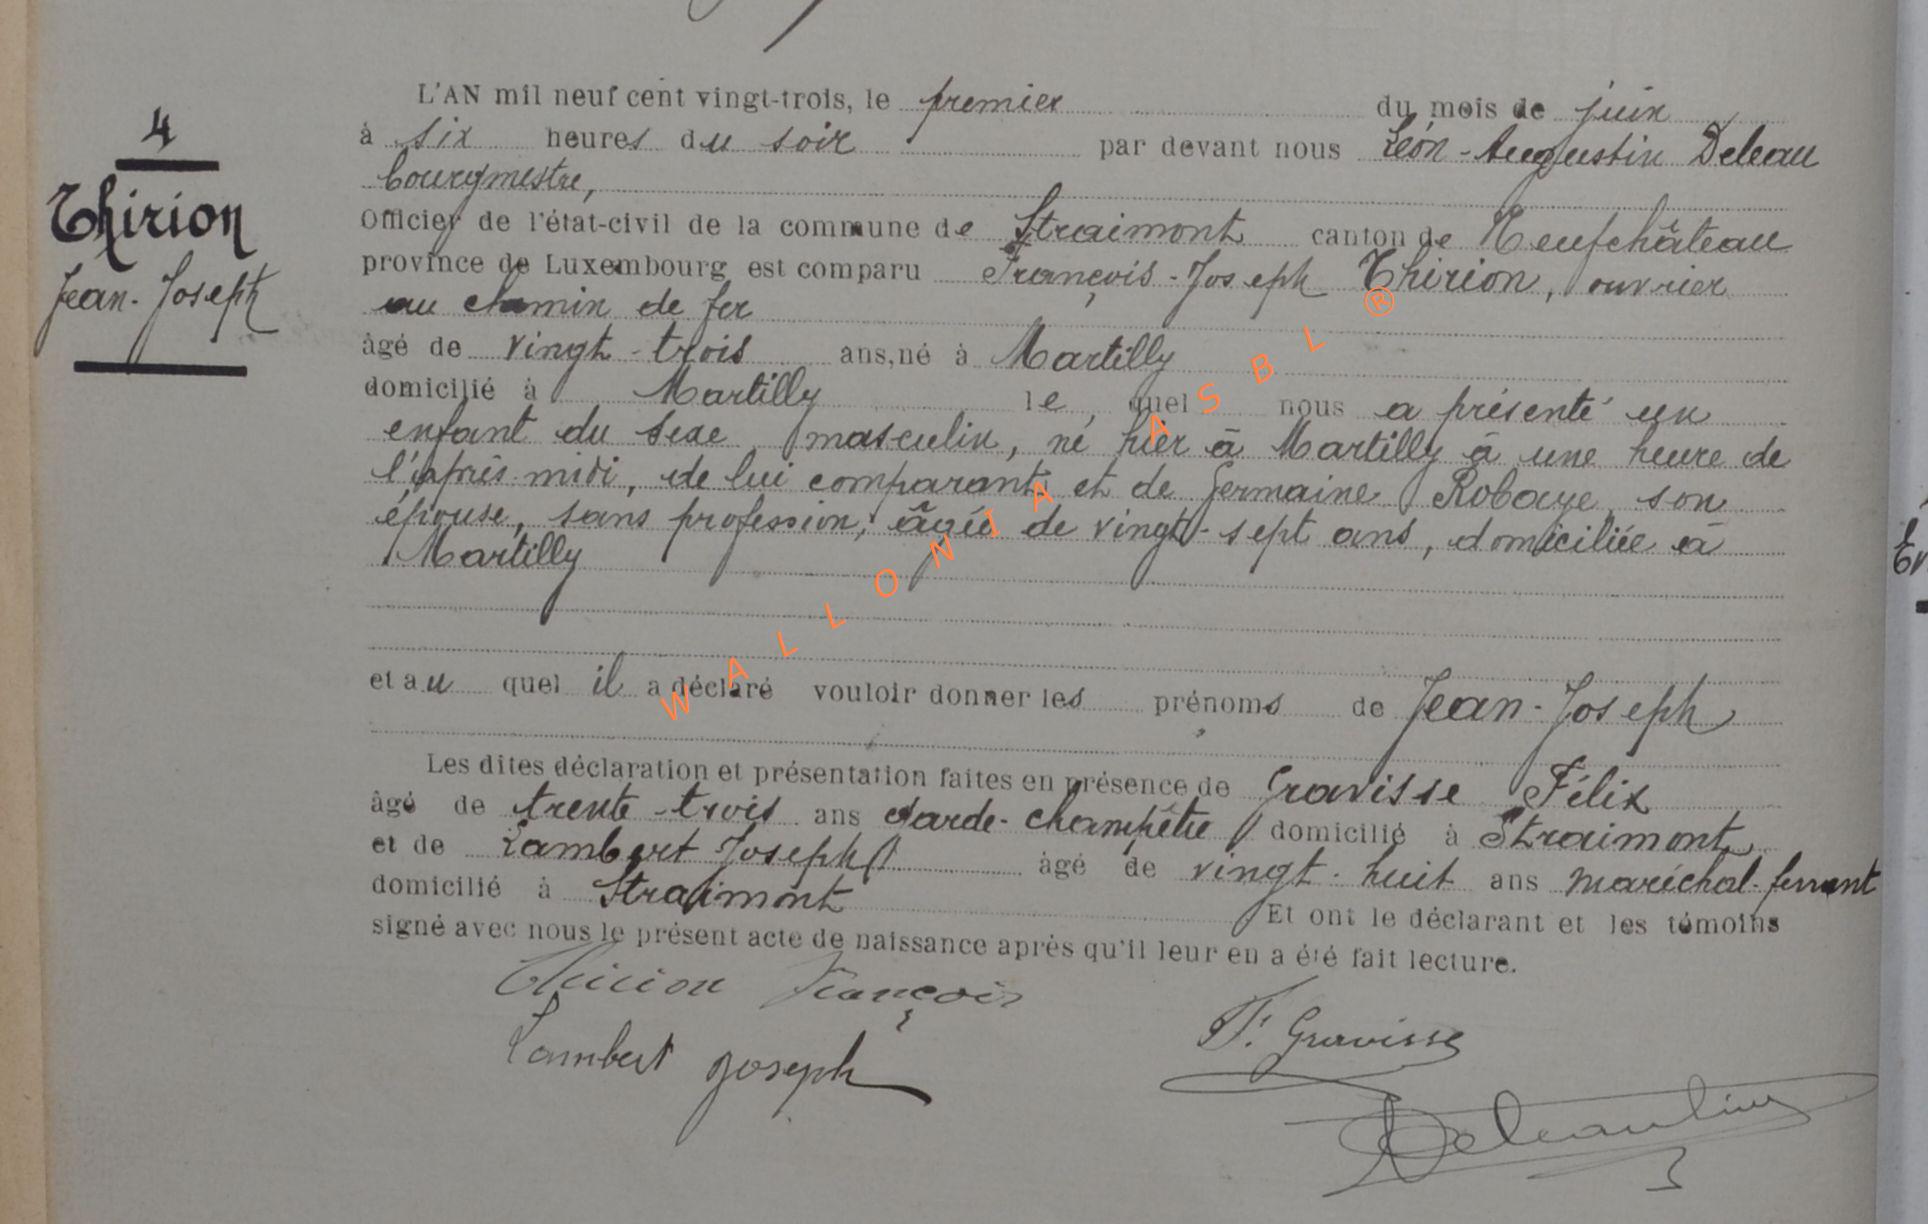 4
Thirion
Jean-Joseph
L'AN mil neuf cent vingt-trois, le premier du mois de juin
à six heures du soir par devant nous Léon-Augustin Deleau
bourgmestre,
Officier de l'état-civil de la commune de Straimont canton de Neufchâteau
province de Luxembourg est comparu François-Joseph Thirion, ouvrier
au chemin de fer
âgé de vingt-trois ans, né à Martilly
domicilié à Martilly le quel nous a présenté un
enfant du sexe masculin, né hier à Martilly à une heure de
l'après-midi, de lui comparant et de Germaine Robaye, son
épouse, sans profession, âgée de vingt-sept ans, domiciliée à
Martilly
et au quel il a déclaré vouloir donner les prénoms de Jean-Joseph
Les dites déclaration et présentation faites en présence de Gravisse Félix
âgé de trente-trois ans garde-champêtre domicilié à Straimont
et de Lambert Joseph âgé de vingt-huit ans maréchal-ferrant
domicilié à Straimont Et ont le déclarant et les témoins
signé avec nous le présent acte de naissance après qu'il leur en a été fait lecture.
Thirion François
F. Gravisse
Lambert Joseph
WALLONIA ASBL ®